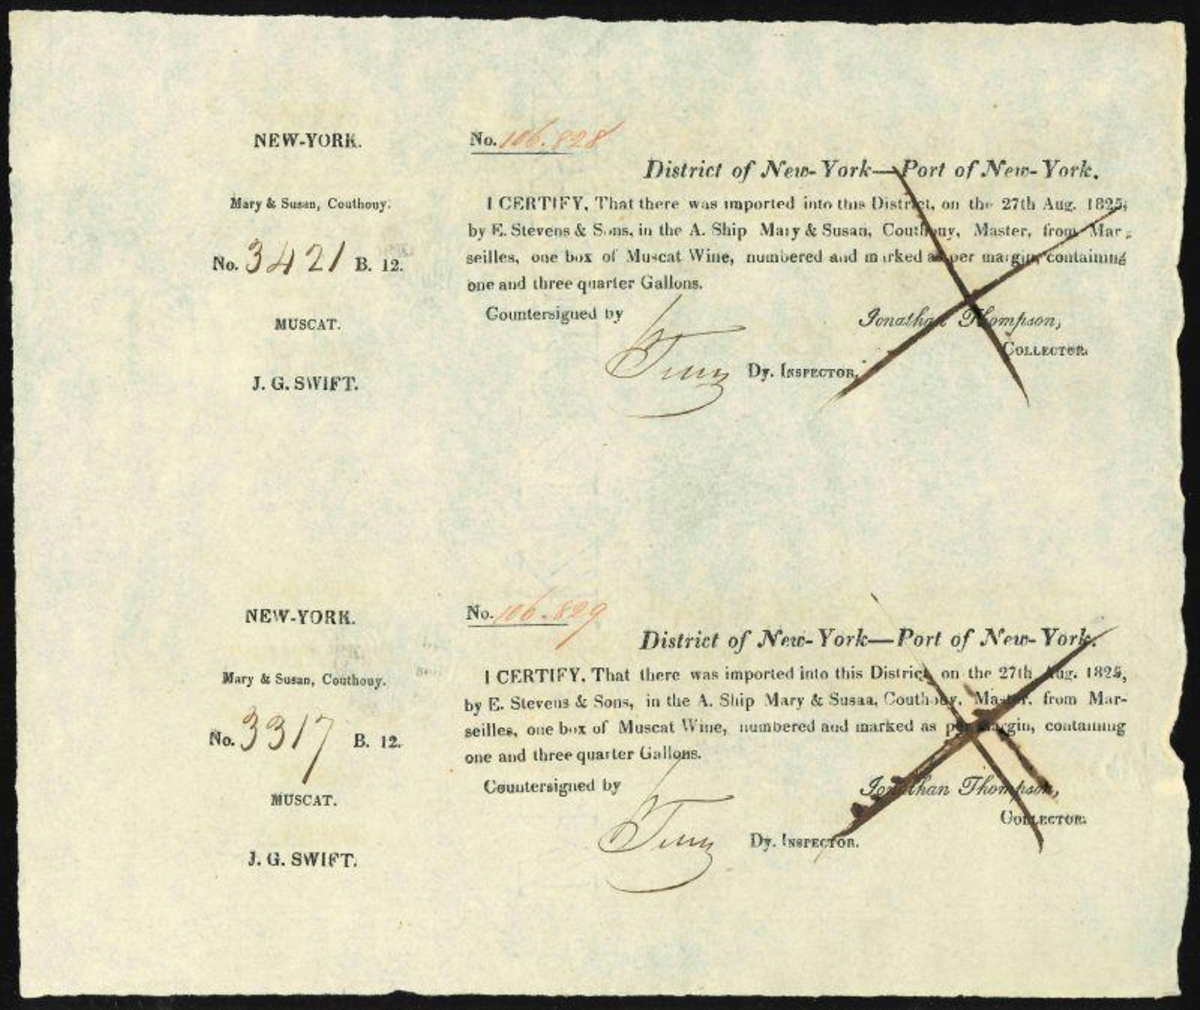 NEW-YORK.
Mary & Susan, Couthouy.
No. 3421 B. 12.
MUSCAT.
J. G. SWIFT.
No. 106.828
District of New-York—Port of New-York.
I CERTIFY, That there was imported into this District, on the 27th Aug. 1825,
by E. Stevens & Sons, in the A. Ship Mary & Susan, Couthouy, Master, from Mar-
seilles, one box of Muscat Wine, numbered and marked as per margin, containing
one and three quarter Gallons.
Countersigned by
Jonathan Thompson,
COLLECTOR.
Dy. INSPECTOR.
NEW-YORK.
Mary & Susan, Couthouy.
No. 3317 B. 12.
MUSCAT.
J. G. SWIFT.
No. 106.829
District of New-York—Port of New-York.
I CERTIFY, That there was imported into this District, on the 27th Aug. 1825,
by E. Stevens & Sons, in the A. Ship Mary & Susan, Couthouy, Master, from Mar-
seilles, one box of Muscat Wine, numbered and marked as per margin, containing
one and three quarter Gallons.
Countersigned by
Jonathan Thompson,
COLLECTOR.
Dy. INSPECTOR.